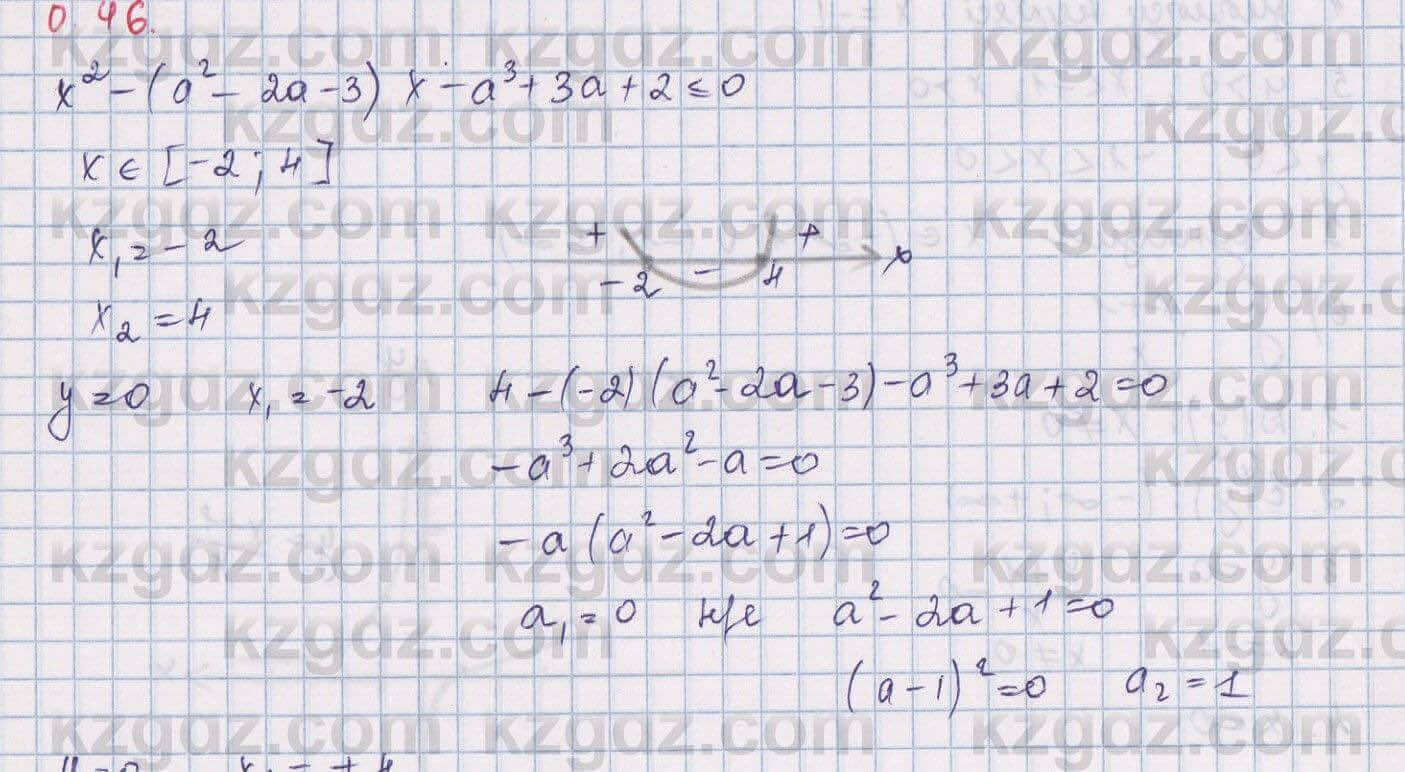 0.46.
x² - (a² - 2a - 3) x - a³ + 3a + 2 ≤ 0
x ∈ [-2; 4]
x₁ = -2
+ - +
-2 4 x
x₂ = 4
y = 0 x₁ = -2 4 - (-2)(a² - 2a - 3) - a³ + 3a + 2 = 0
-a³ + 2a² - a = 0
-a (a² - 2a + 1) = 0
a₁ = 0 не/е a² - 2a + 1 = 0
(a - 1)² = 0 a₂ = 1
kzgdz.com